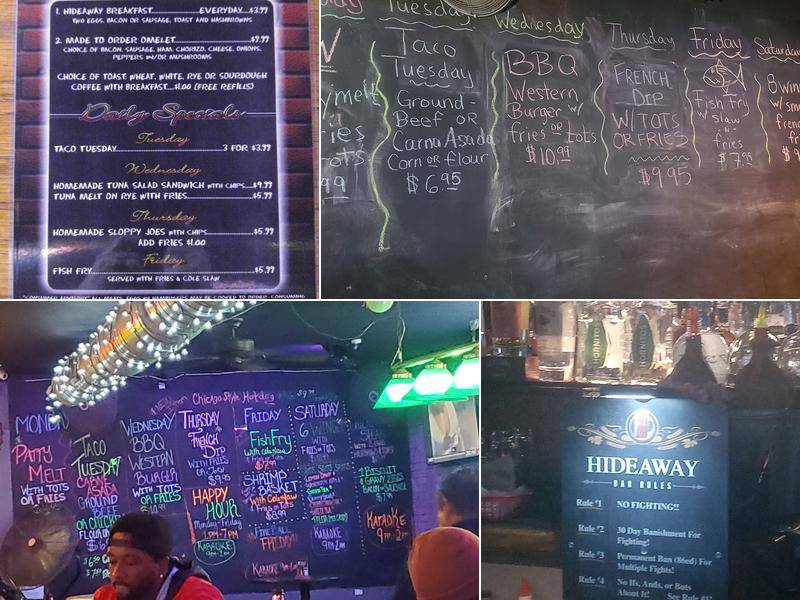 1. HIDEAWAY BREAKFAST..................EVERYDAY...$3.99
TWO EGGS, BACON OR SAUSAGE, TOAST AND HASHBROWNS
2. MADE TO ORDER OMELET..............................$9.99
CHOICE OF BACON, SAUSAGE, HAM, CHORIZO, CHEESE, ONIONS,
PEPPERS AND/OR MUSHROOMS
CHOICE OF TOAST WHEAT, WHITE, RYE OR SOURDOUGH
COFFEE WITH BREAKFAST....$1.00 (FREE REFILLS)
Daily Specials
Tuesday
TACO TUESDAY..............................3 FOR $3.99
Wednesday
HOMEMADE TUNA SALAD SANDWICH WITH CHIPS.....$9.99
TUNA MELT ON RYE WITH FRIES.........................$5.99
Thursday
HOMEMADE SLOPPY JOES WITH CHIPS.................$5.99
ADD FRIES $1.00
Friday
FISH FRY..................................................$5.99
SERVED WITH FRIES & COLE SLAW
Tuesday
Taco
Tuesday
Ground-
Beef OR
Carna Asada
Corn OR flour
$6.95
Wednesday
BBQ
Western
Burger w/
fries or tots
$10.99
Thursday
FRENCH
DIP
W/ TOTS
OR FRIES
$9.95
Friday
Fish Fry
w/ slaw
"n"
fries
$7.99
Saturday
8 win
w/ sm
fren
Chicago Style Hotdog
MOND
PATTY
MELT
WITH TOTS
OR FRIES
TACO
TUESDAY
CARNE
ASADA
GROUND
BEEF
OR CHICKE
WEDNESDAY
BBQ
WESTERN
BURGER
WITH TOTS
OR FRIES
THURSDAY
FRENCH
DIP
WITH FRIES
OR TOTS
$9.95
HAPPY
HOUR
Monday-Friday
1PM-7PM
KARAOKE
FRIDAY
FISH FRY
with coleslaw
$7.99
SHRIMP
BASKET
With Coleslaw
Fries or Tots
$8.99
FIREBALL
FRIDAY!
KARAOKE
SATURDAY
6 WINGS
KARAOKE
1 BISCUIT
KARAOKE
9PM-2AM
HORNITOS
HORNITOS
HIDEAWAY
BAR RULES
Rule #1 NO FIGHTING!!
Rule #2 30 Day Banishment For
Fighting!
Rule #3 Permanent Ban (86ed) For
Multiple Fights!
Rule #4 No Ifs, Ands, or Buts
About It! See Rule #1!